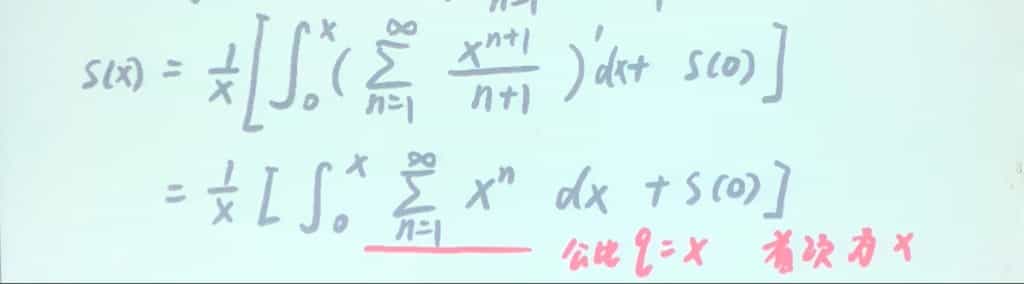 S(x) = 1/x [ ∫₀ˣ ( ∑ₙ₌₁^∞ xⁿ⁺¹/(n+1) )′ dx + S(0) ]
= 1/x [ ∫₀ˣ ∑ₙ₌₁^∞ xⁿ dx + S(0) ]
公比 q = x 首项为 x